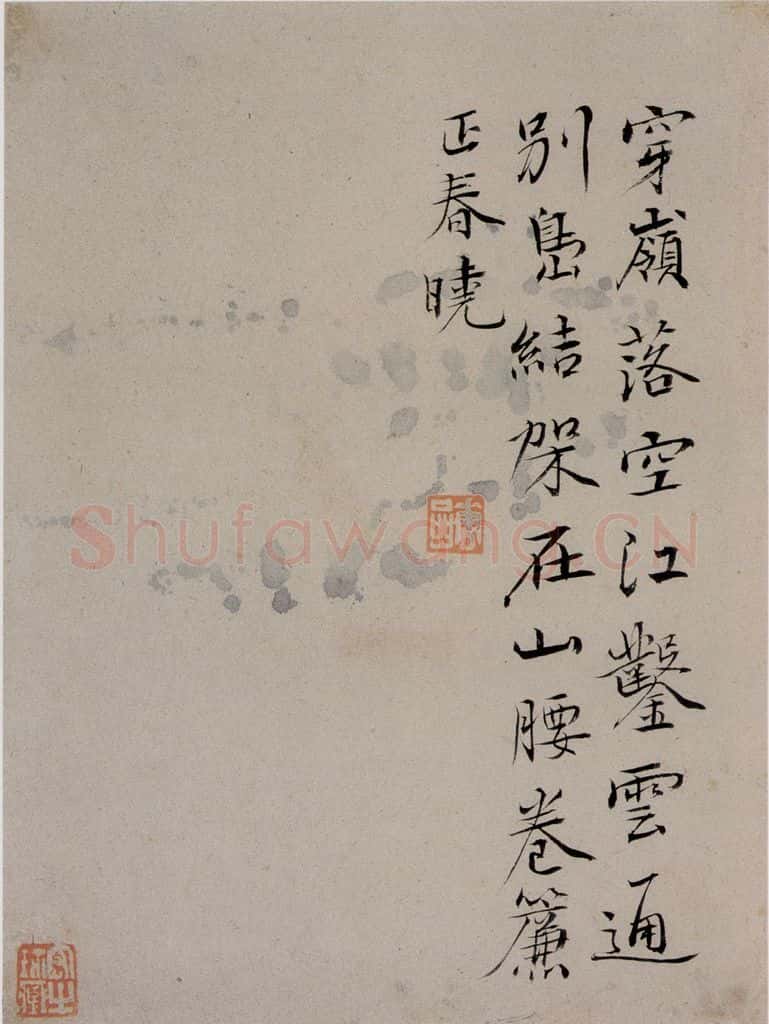 穿嶺落空江鑿雲通
別島結架在山腰卷簾
正春曉
Shufawang.CN